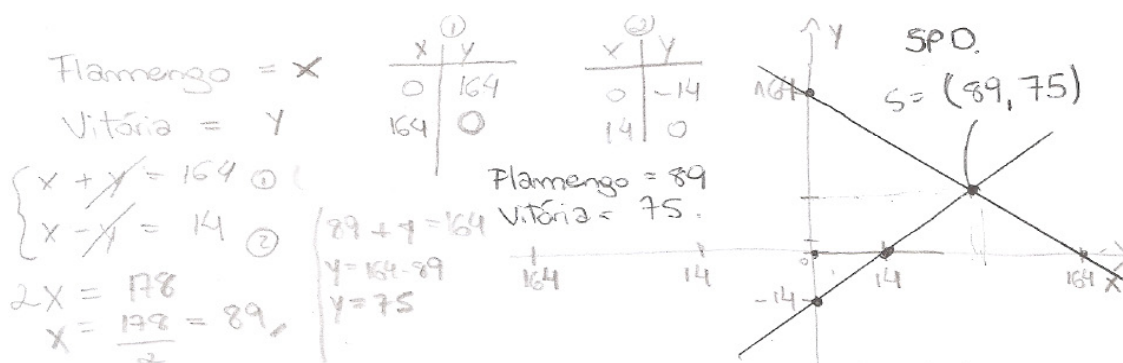 Flamengo = X
Vitória = Y
x + y = 164 ①
x - y = 14 ②
2X = 178
X = 178/2 = 89
89 + y = 164
y = 164 - 89
y = 75
①
X Y
0 164
164 0
②
X Y
0 -14
14 0
Flamengo = 89
Vitória = 75.
164 14
Y
SPD.
S = (89, 75)
164
0 14 164 X
-14